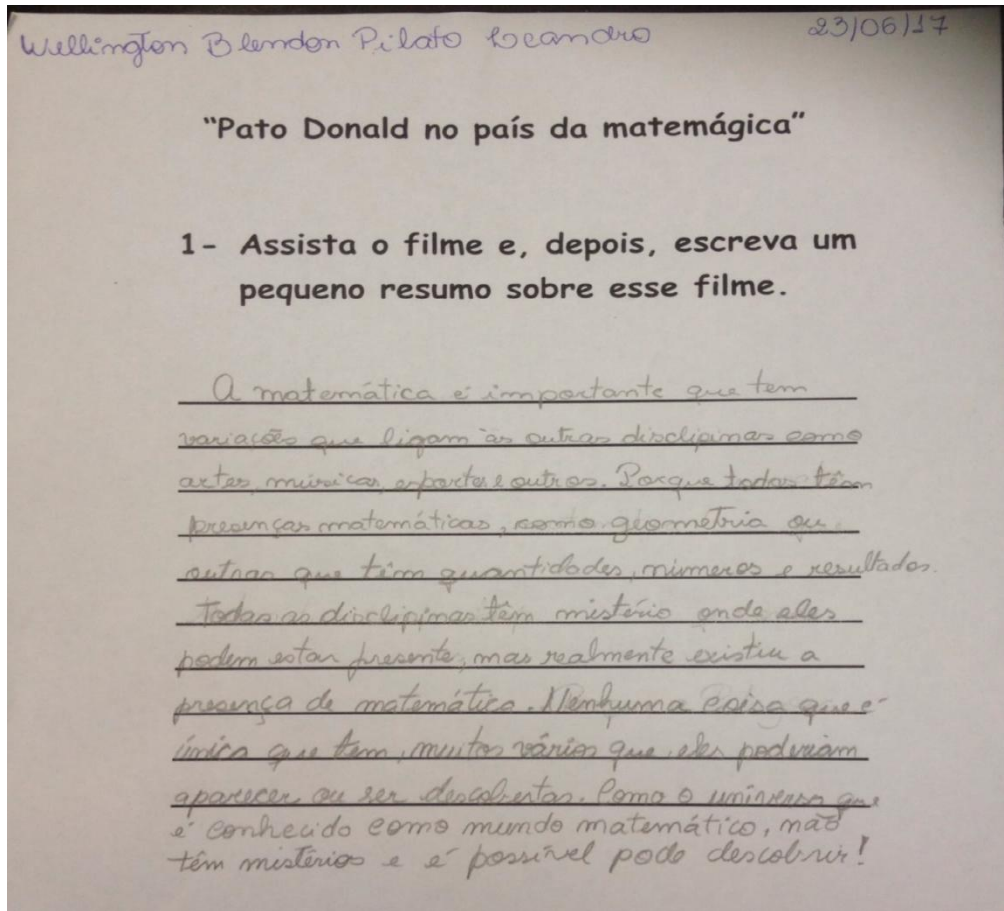 Wellington Blendon Pilato Leandro 23/06/17
"Pato Donald no país da matemágica"
1- Assista o filme e, depois, escreva um
pequeno resumo sobre esse filme.
A matemática é importante que tem
variações que ligam às outras disclipinas como
artes, músicas, esportes e outros. Porque todas têm
presenças matemáticas, como geometria ou
outras que têm quantidades, números e resultados.
Todas as disclipinas têm mistério onde eles
podem estar presente, mas realmente existiu a
presença de matemática. Nenhuma coisa que é
única que tem, muitos vários que eles poderiam
aparecer ou ser descobertas. Como o universo que
é conhecido como mundo matemático, não
têm mistérios e é possível pode descobrir!